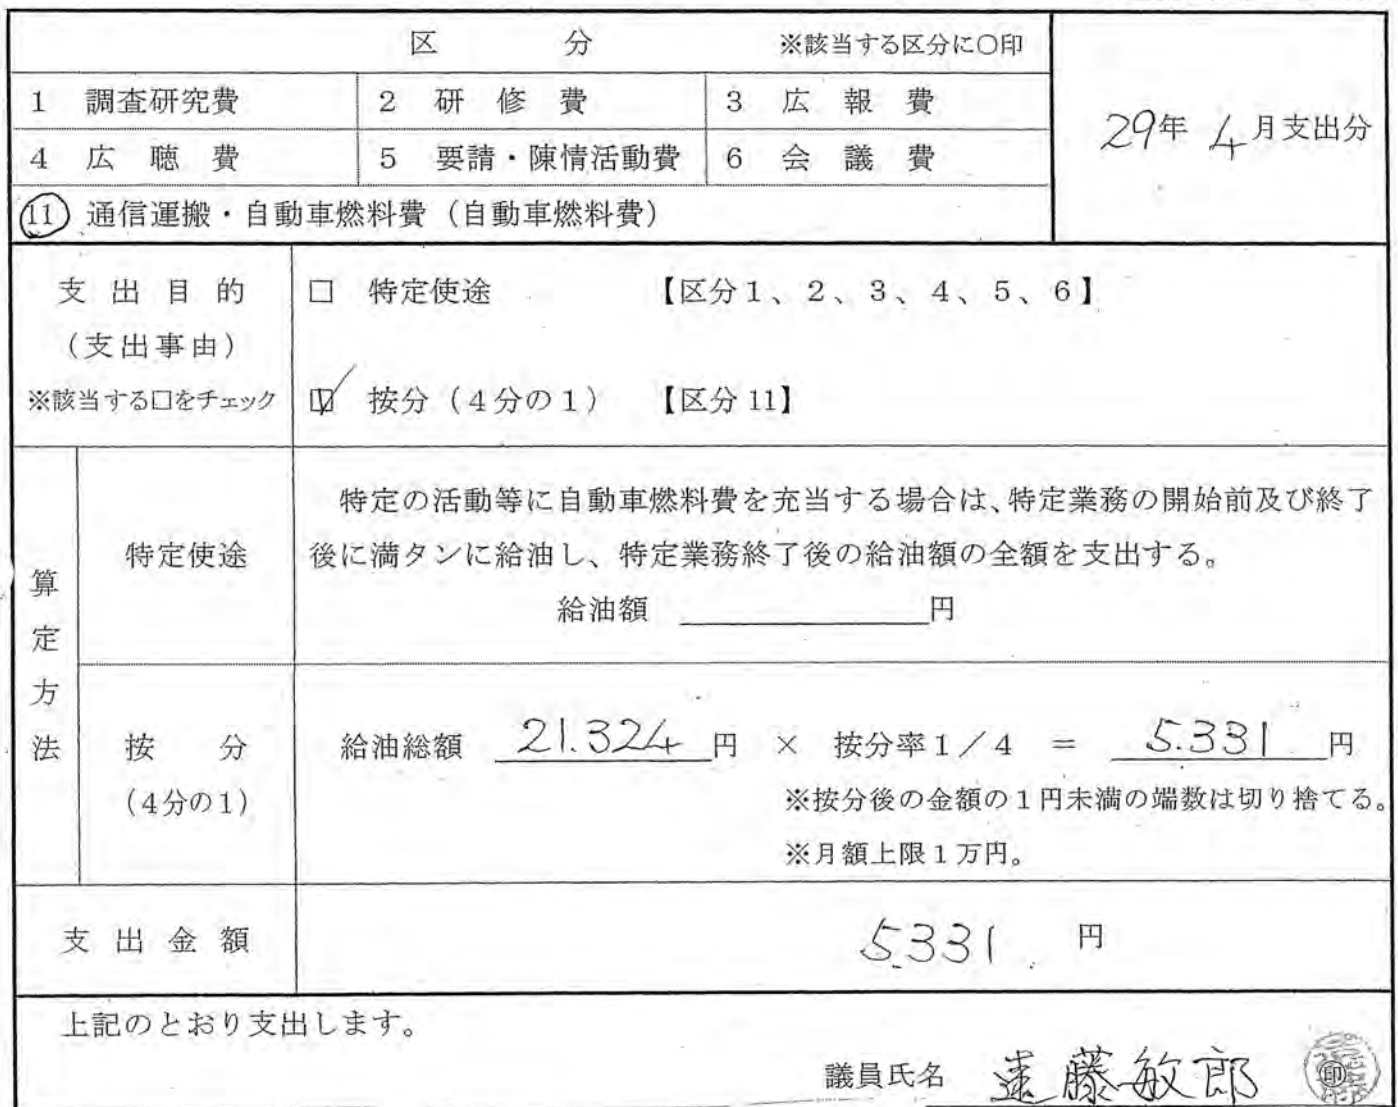 区　　　　分　　　　※該当する区分に○印
1　調査研究費　2　研　修　費　3　広　報　費
29年 4月支出分
4　広　聴　費　5　要請・陳情活動費　6　会　議　費
11 通信運搬・自動車燃料費（自動車燃料費）
支 出 目 的
（支出事由）
※該当する□をチェック
□　特定使途　　　　【区分1、2、3、4、5、6】
☑　按分（4分の1）　【区分11】
算定方法
特定使途
特定の活動等に自動車燃料費を充当する場合は、特定業務の開始前及び終了
後に満タンに給油し、特定業務終了後の給油額の全額を支出する。
給油額　　　　　　円
按　　分
（4分の1）
給油総額　21.324 円　×　按分率1／4　＝　5.331 円
※按分後の金額の1円未満の端数は切り捨てる。
※月額上限1万円。
支 出 金 額　5.331 円
上記のとおり支出します。
議員氏名　遠藤敏郎　印